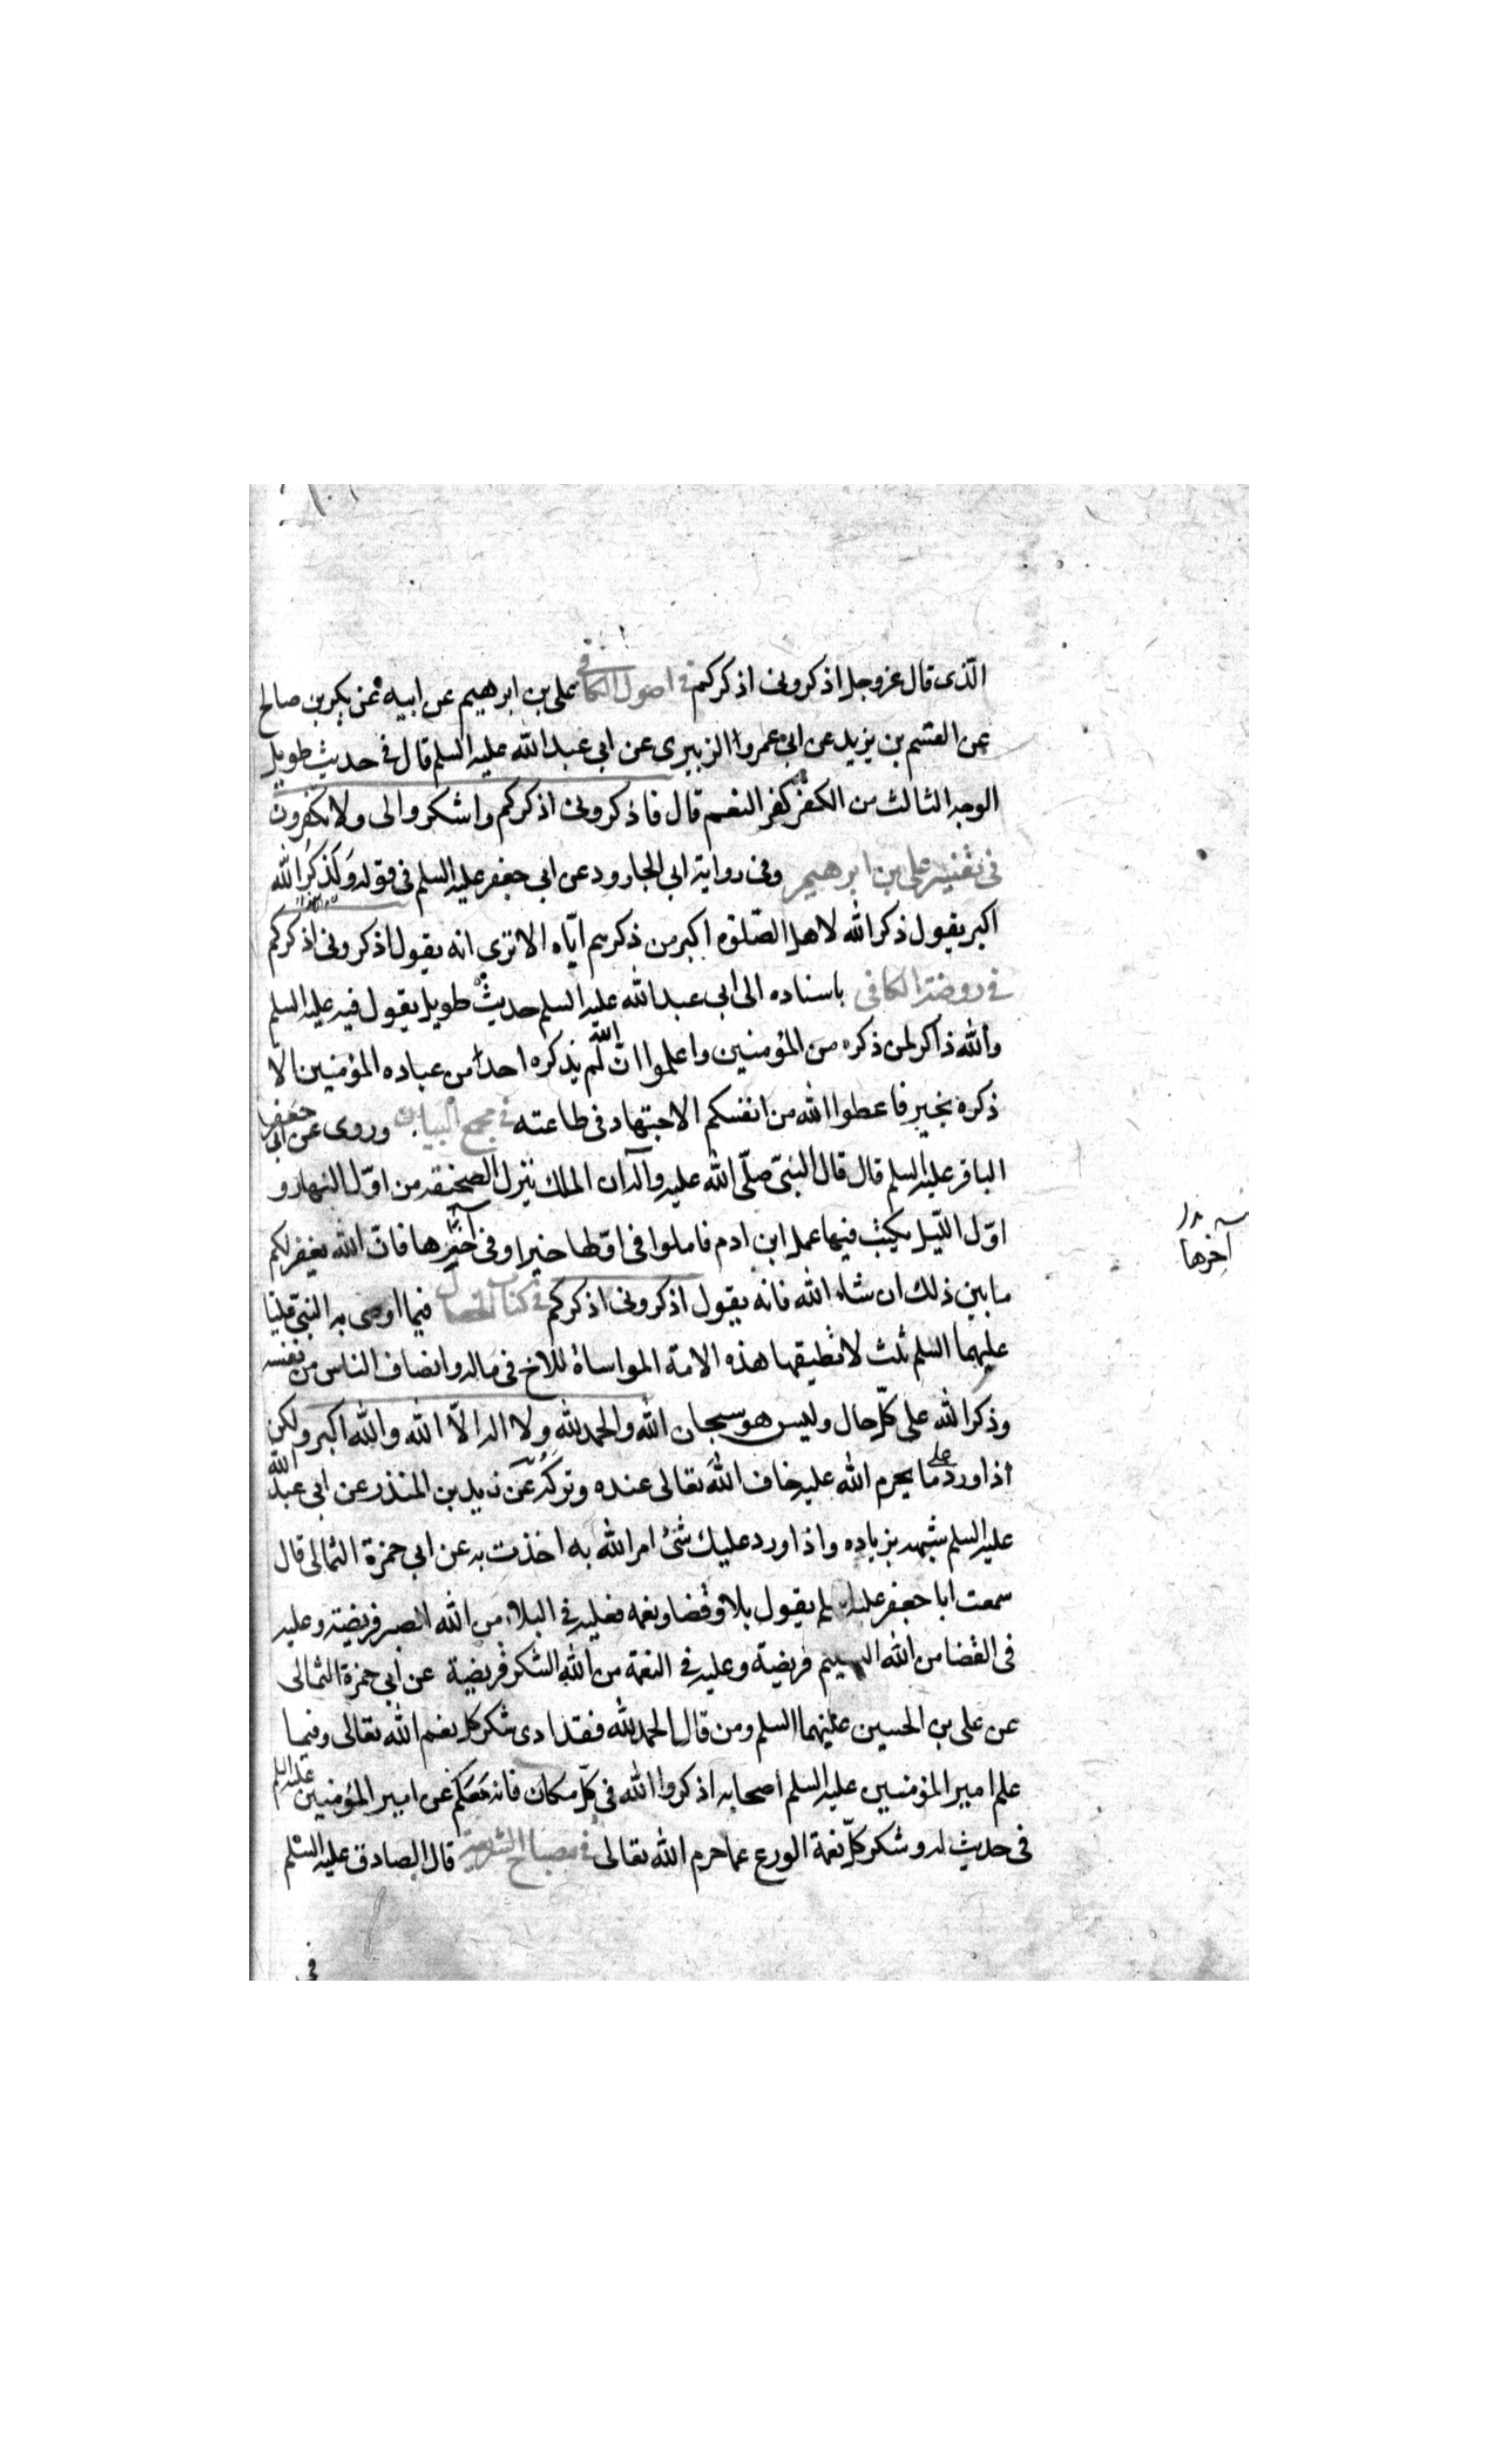 الّذى قال عزوجل اذكرونى اذكركم فى اصول الكافى على بن ابرهيم عن ابيه عن بكر بن صالح
عن القسم بن يزيد عن ابى عمروا الزبيرى عن ابى عبد الله عليه السلم قال فى حديث طويل
الوجه الثالث من الكفر كفر النعم قال فاذكرونى اذكركم واشكروا لى ولا تكفرون
فى تفسير على بن ابرهيم وفى رواية ابى الجارود عن ابى جعفر عليه السلم فى قوله وَلَذِكرُ الله
اكبر يقول ذكر الله لاهل الصّلوة اكبر من ذكرهم ايّاه الا ترى انه يقول اذكرونى اذكركم
فى روضة الكافى باسناده الى ابى عبد الله عليه السلم حديث طويل يقول فيه عليه السلم
والله ذاكر لمن ذكره من المؤمنين واعلموا انّ الله لم يذكره احداً من عباده المؤمنين الّا
ذكره بخير فاعطوا الله من انفسكم الاجتهاد فى طاعته فى مجمع البيان وروى عن ابى جعفر
الباقر عليه السلم قال قال النبىّ صلّى الله عليه وآله ان الملك ينزل الصحيفة من اوّل النهار و
اوّل اللّيل يكتب فيها عمل ابن ادم فاملوا فى اوّلها خيرا وفى آخرها فانّ الله يغفر لكم
آخرها
ما بين ذلك ان شاء الله فانه يقول اذكرونى اذكركم فى كتاب الخصال فيما اوصى به النبىّ عليّا
عليهما السلم ثلث لا تطيقها هذه الامة المواساة للاخ فى ماله وانصاف الناس من نفسه
وذكر الله على كلّ حال وليس هو سبحان الله والحمد لله ولا اله الّا الله والله اكبر ولكن
اذا ورد على ما يحرم الله عليه خاف الله تعالى عنده وتركه عن زيد بن المنذر عن ابى عبد الله
عليه السلم شبهه بزياده واذا ورد عليك شئ امر الله به اخذت به عن ابى حمزة الثمالى قال
سمعت ابا جعفر عليه السلم يقول بلا وقضا ونعمه فعليه فى البلاء من الله الصبر فريضة وعليه
فى القضا من الله التسليم فريضة وعليه فى النعمة من الله الشكر فريضية عن ابى حمزة الثمالى
عن على بن الحسين عليهما السلم ومن قال الحمد لله فقد ادى شكر كل نعم الله تعالى وفيما
علم امير المؤمنين عليه السلم اصحابه اذكروا الله فى كلّ مكان فانه معكم عن امير المؤمنين عليه السلم
فى حديث له وشكر كلّ نعمة الورع عما حرم الله تعالى فى مصباح الشريعة قال الصادق عليه السّلم
فى